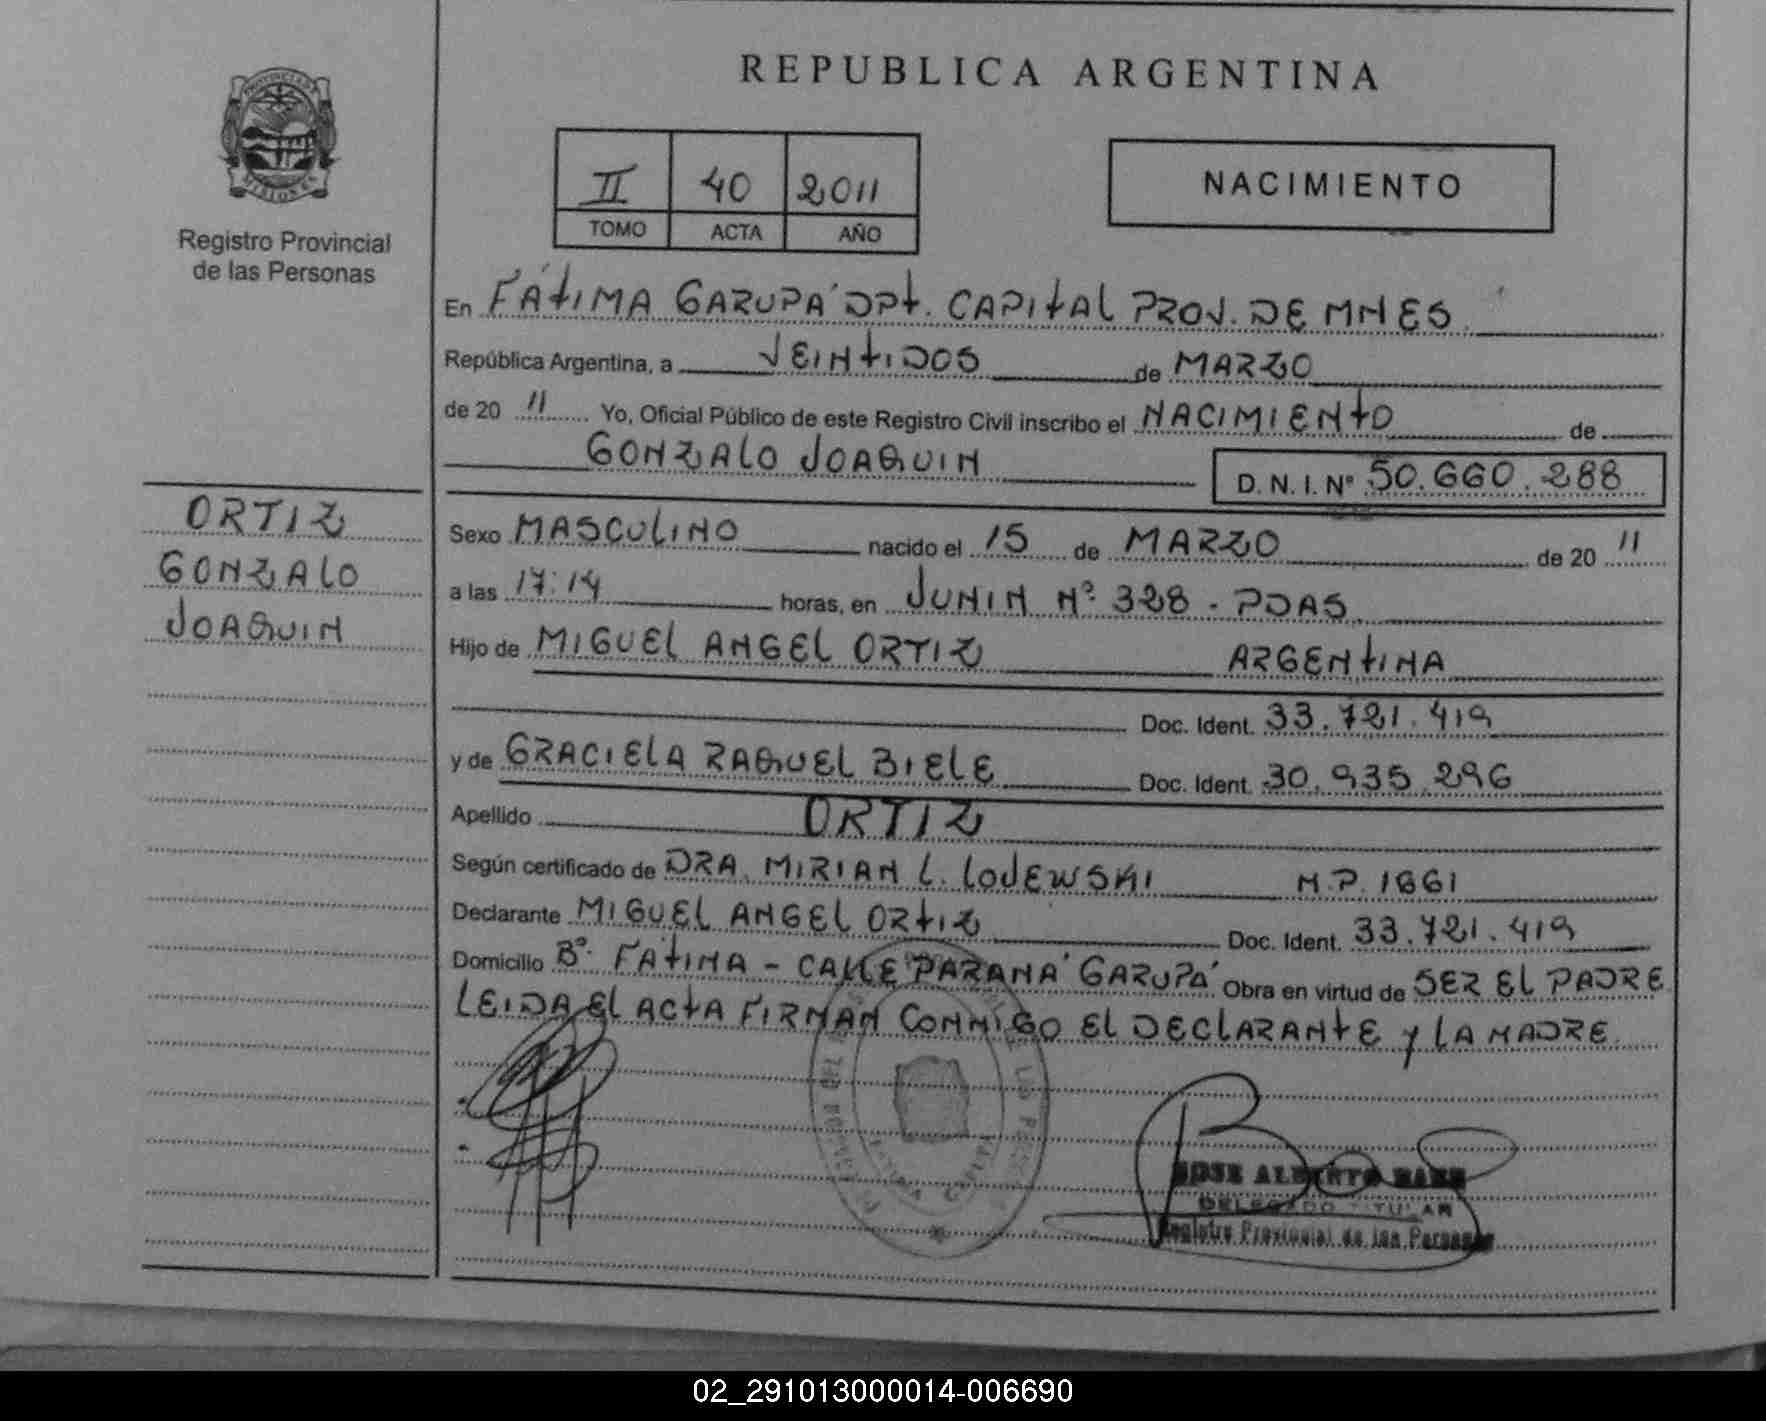 REPUBLICA ARGENTINA
PROVINCIA DE
MISIONES
Registro Provincial
de las Personas
II 40 2011
TOMO ACTA AÑO
NACIMIENTO
En FÁTIMA GARUPA' DPT. CAPITAL PROV. DE MNES
República Argentina, a VEINTIDOS de MARZO
de 20 11 Yo, Oficial Público de este Registro Civil inscribo el NACIMIENTO de
GONZALO JOAQUIN D.N.I. Nº 50.660.288
ORTIZ
GONZALO
JOAQUIN
Sexo MASCULINO nacido el 15 de MARZO de 20 11
a las 17:14 horas, en JUNIN Nº 328 - PDAS
Hijo de MIGUEL ANGEL ORTIZ ARGENTINA
Doc. Ident. 33.721.419
y de GRACIELA RAQUEL BIELE Doc. Ident. 30.935.296
Apellido ORTIZ
Según certificado de DRA. MIRIAN L. LOJEWSKI M.P. 1661
Declarante MIGUEL ANGEL ORTIZ Doc. Ident. 33.721.419
Domicilio Bº FATIMA - CALLE PARANA' GARUPA' Obra en virtud de SER EL PADRE
LEIDA EL ACTA FIRMAN CONMIGO EL DECLARANTE Y LA MADRE
JOSE ALBERTO BAEZ
DELEGADO TITULAR
Registro Provincial de las Personas
02_291013000014-006690